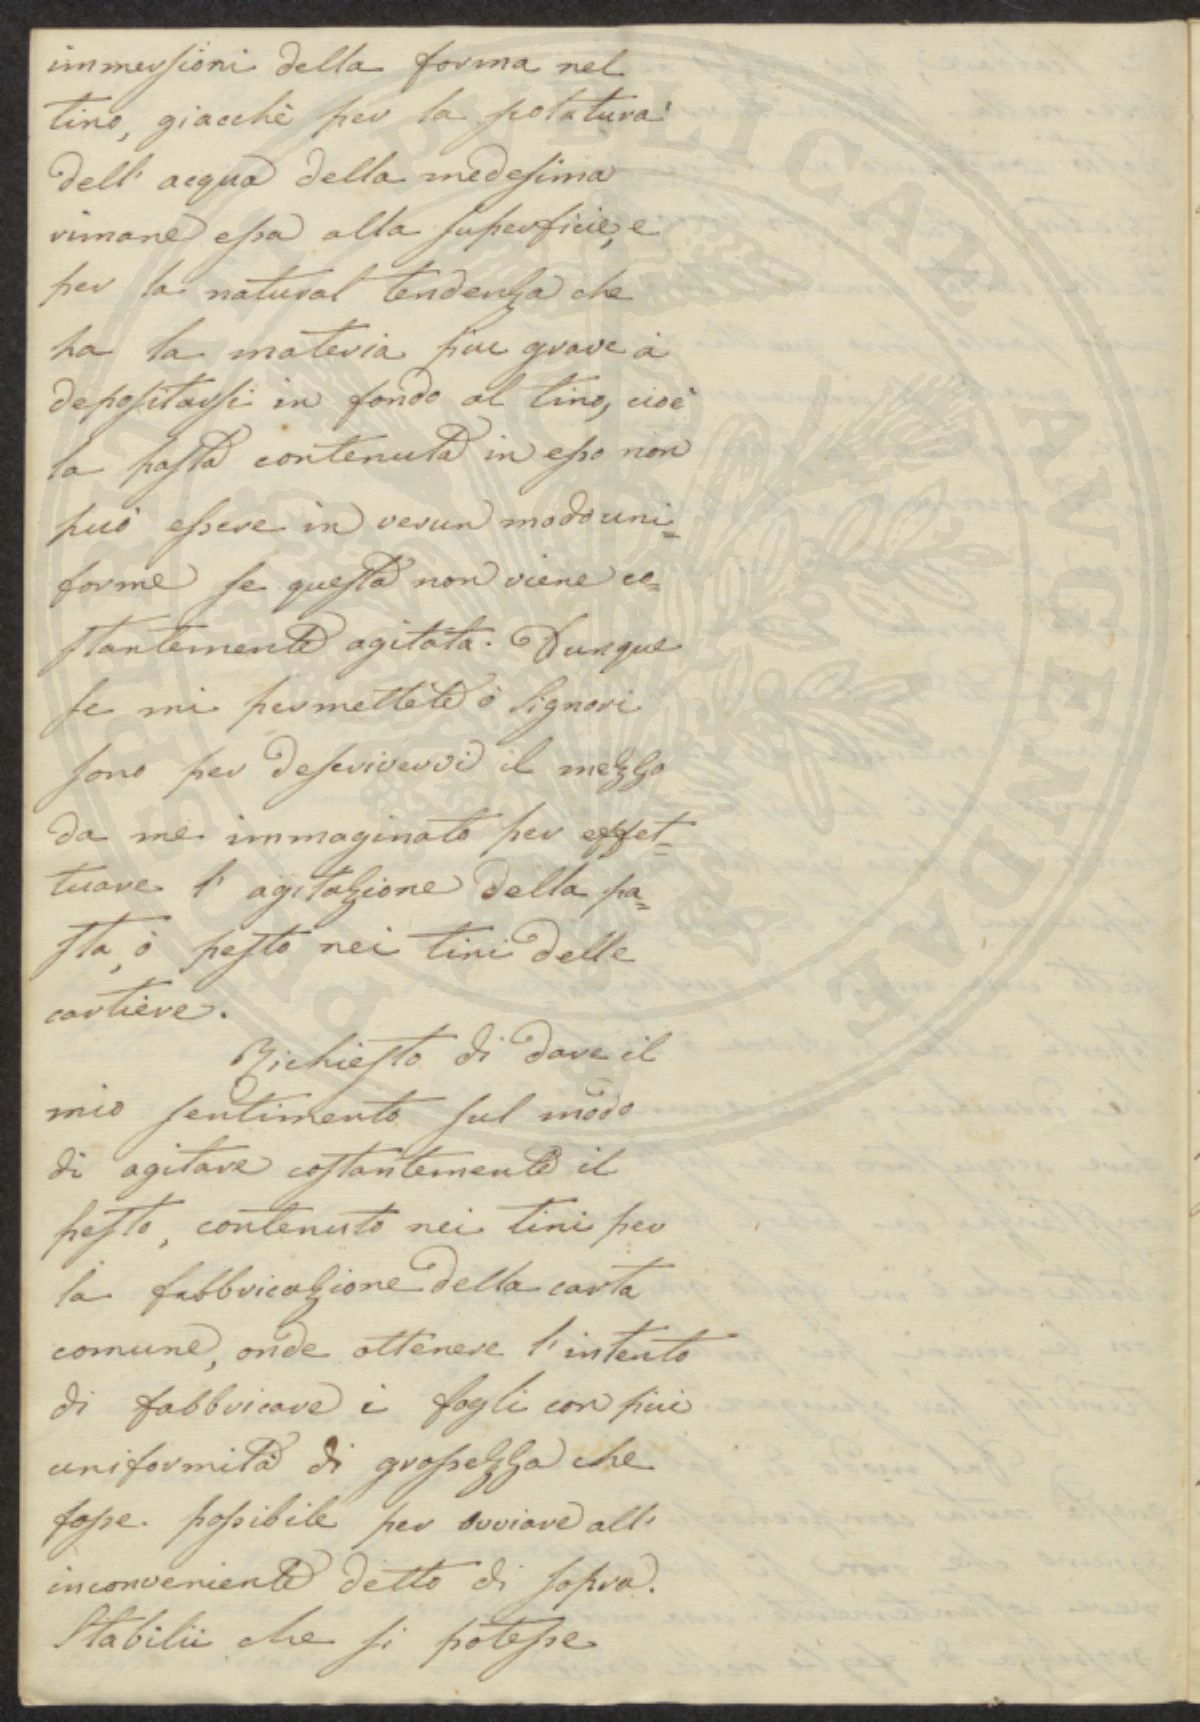 immersioni della forma nel
tino, giacchè per la scolatura
dell' acqua della medesima
rimane essa alla superficie, e
per la natural tendenza che
ha la materia piu grave à
depositarsi in fondo al tino, cioè
la pasta contenuta in esso non
può essere in verun modo uni=
forme se questa non viene co=
stantemente agitata. Dunque
se mi permettete ò Signori
sono per descrivervi il mezzo
da me immaginato per effet=
tuare l' agitazione della pa=
sta, ò pesto nei tini delle
cartiere.
Richiesto di dare il
mio sentimento sul modo
di agitare costantemente il
pesto, contenuto nei tini per
la fabbricazione della carta
comune, onde ottenere l' intento
di fabbricare i fogli con più
uniformità di grossezza che
fosse possibile per ovviare all'
inconveniente detto di sopra.
Stabilii che si potesse
PUBLICAE AVGENDAE